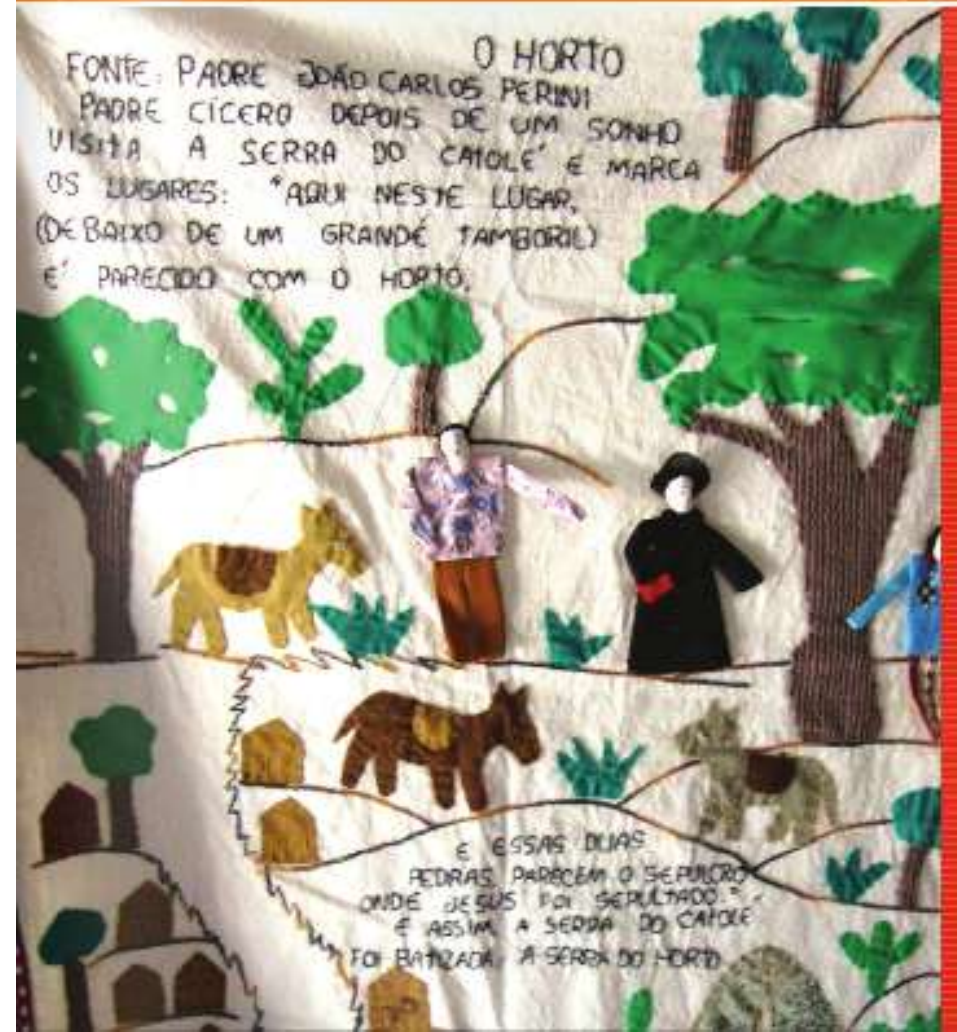 O HORTO
FONTE: PADRE JOÃO CARLOS PERINI
PADRE CÍCERO DEPOIS DE UM SONHO
VISITA A SERRA DO CATOLÉ E MARCA
OS LUGARES: "AQUI NESTE LUGAR,
(DEBAIXO DE UM GRANDE TAMBORIL)
É PARECIDO COM O HORTO,
E ESSAS DUAS
PEDRAS PARECEM O SEPULCRO
ONDE JESUS FOI SEPULTADO."
E ASSIM A SERRA DO CATOLÉ
FOI BATIZADA A SERRA DO HORTO